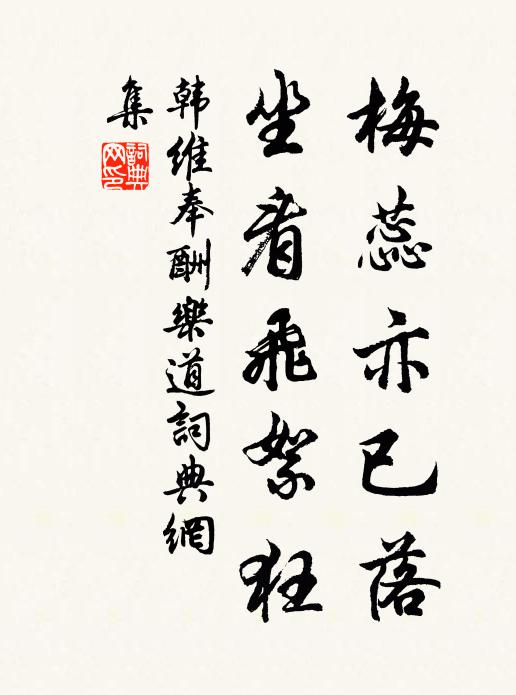 梅蕊亦已落
坐看飛絮狂
韩維奉酬樂道詞典網
集
詞典網印